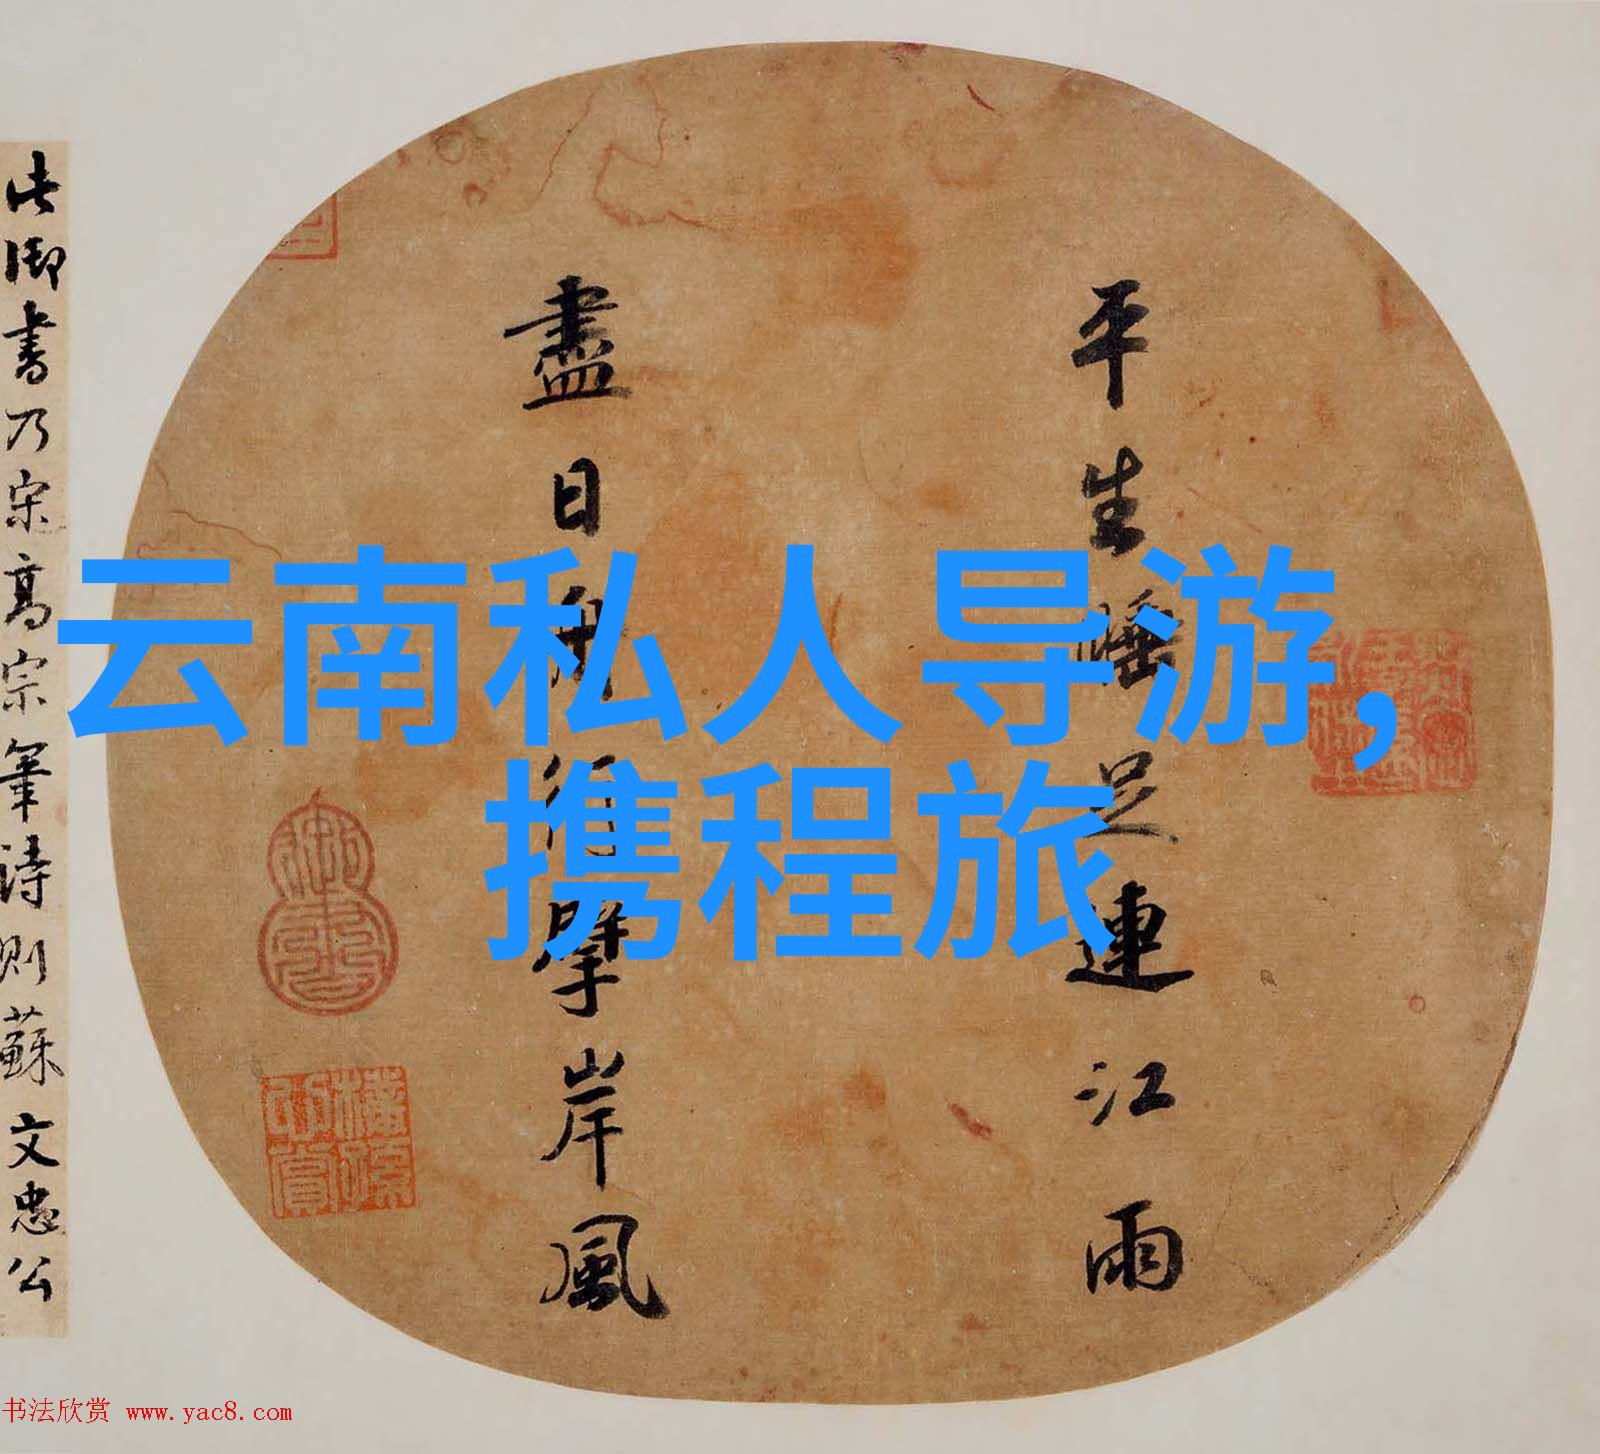 云南私人导游,
携程旅
平生睡足連江雨
盡日舟行擘岸風
此御書乃宋高宗筆詩則蘇文忠公
书法欣赏 www.yac8.com